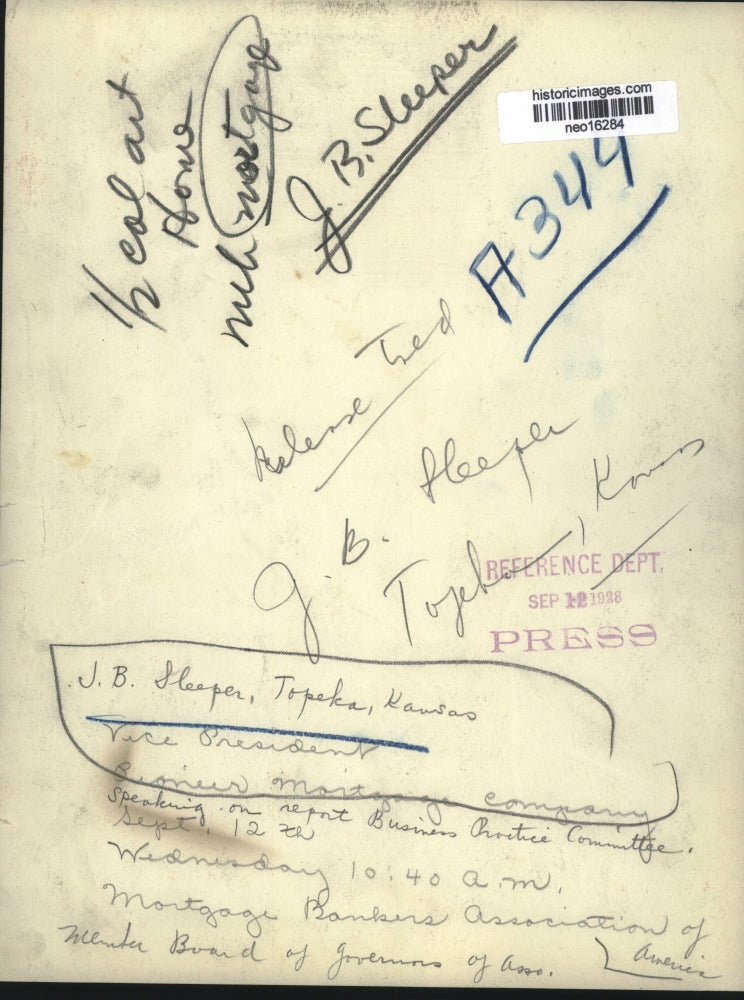 1/2 col art
Home
mch mortgage
J. B. Sleeper
historicimages.com
neo16284
A344
Release Wed
J. B. Sleeper
Topeka, Kansas
REFERENCE DEPT.
SEP 12 1928
PRESS
J. B. Sleeper, Topeka, Kansas
Vice President
Pioneer Mortgage Company
speaking on report Business Practice Committee.
Sept. 12th
Wednesday 10:40 a.m.
Mortgage Bankers Association of
America
Member Board of Governors of Asso.